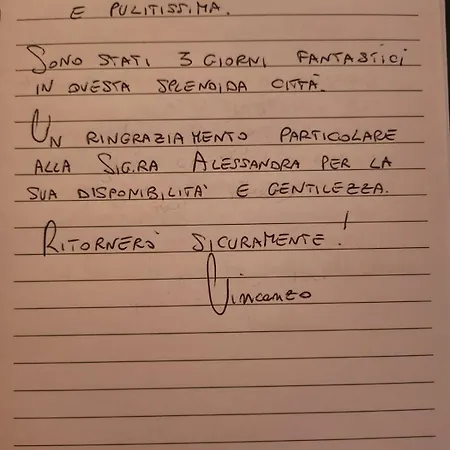 E PULITISSIMA.
SONO STATI 3 GIORNI FANTASTICI
IN QUESTA SPLENDIDA CITTÀ.
UN RINGRAZIAMENTO PARTICOLARE
ALLA SIG.RA ALESSANDRA PER LA
SUA DISPONIBILITA' E GENTILEZZA.
RITORNERÒ SICURAMENTE!
Vincenzo